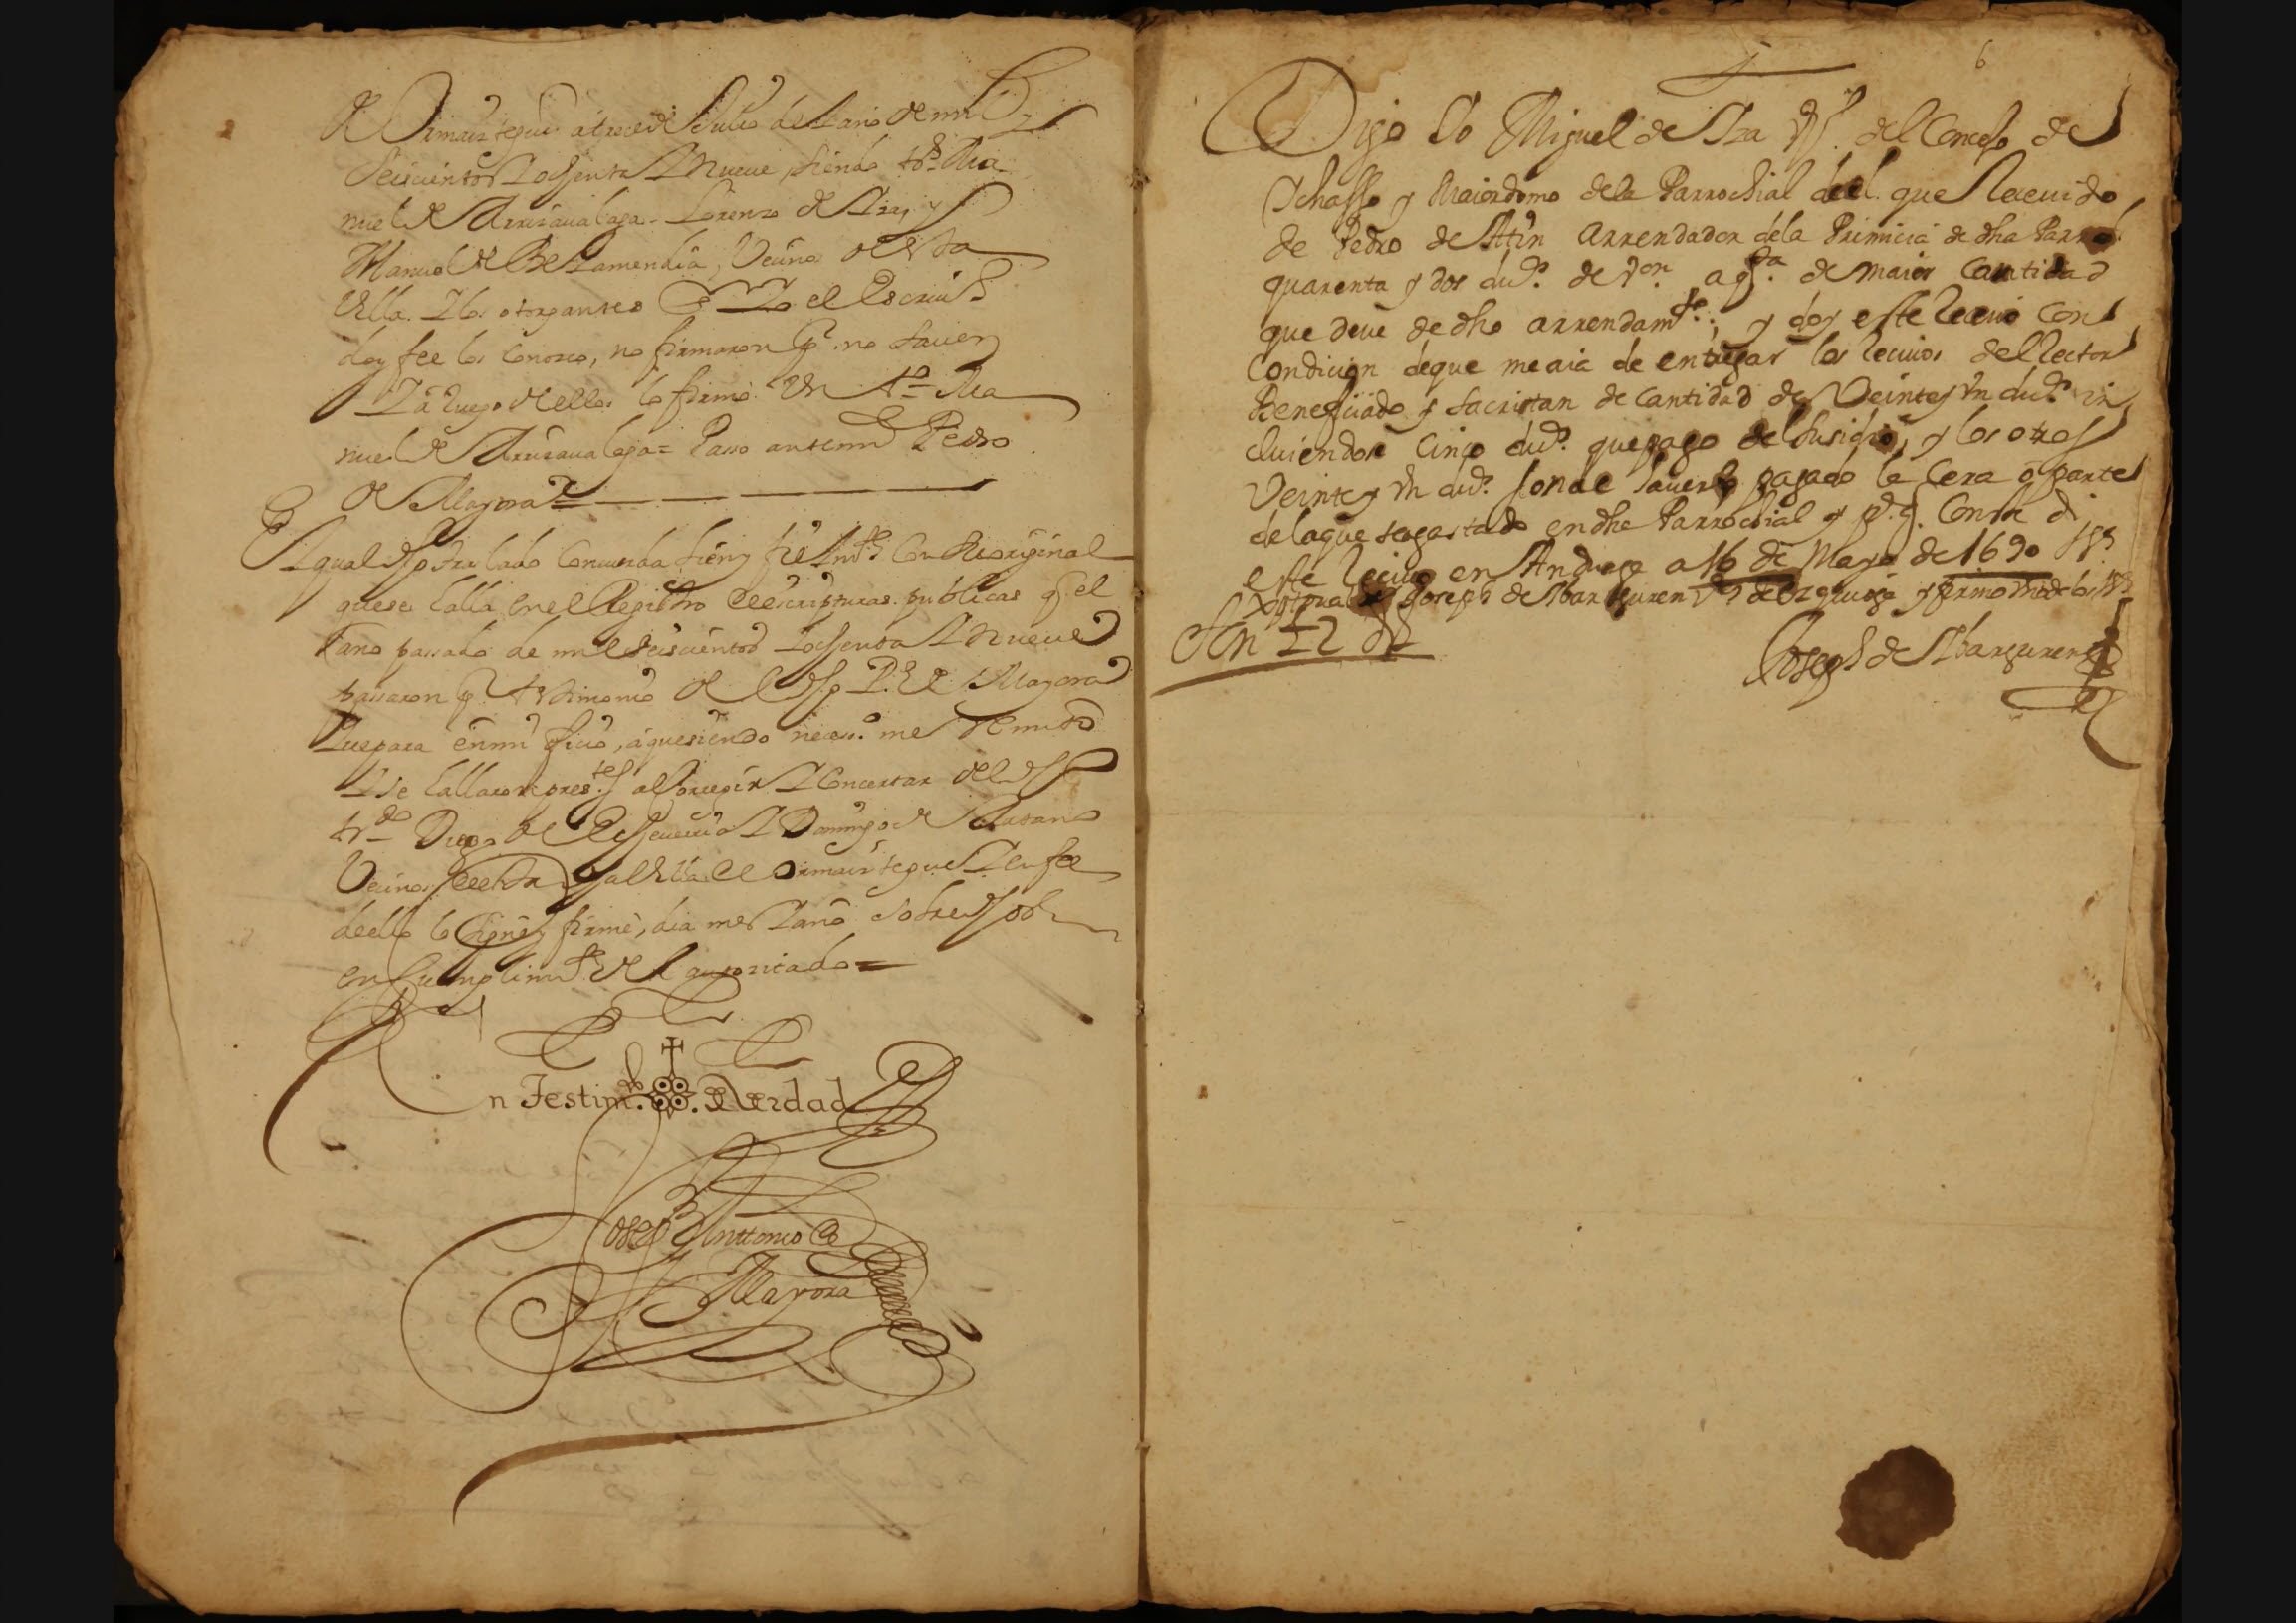 de Ormaiztegui a trece de Julio del año de mil y
Seiscientos y ochenta y nueve, siendo tºs Ma
nuel de Arrizavalaga, Lorenzo de
Manuel de Beltamendia, Vecinos de esta
Villa. y los otorgantes yo el Escriuº
doy fee los Conozco, no firmaron por no sauer
y a ruego de ellos lo firmó un tº Ma
nuel de Arrizavalaga = Passo ante mi Pedro
de Mayora =
El qual dho traslado Concuerda bien y fielmte Con su original
que se halla en el Registro de escripturas publicas q. el
año passado de mil seiscientos y ochenta y nueve
passaron por testimonio del dho P. de Mayora
que para en mi oficio, a que siendo necess.º me remito
y se hallaron pres.tes al corregir y Concertar del dho
tr.do Diego de Echeverria y Domingo de
Vecinos de esta dha Villa de Ormaiztegui y en fee
de ello lo signé y firmé, dia mes y año sobredhos
en Cumplimto de lo
En Testim.º de Verdad
Joseph Anttonio de
Mayora
6
Digo Yo Miguel de Vº. del Concejo de
Ychasso y Maiordomo de la Parrochial de el. que Receuido
de Pedro de Atin Arrendador de la Primicia de dha Parrol.
quarenta y dos du.s de Von. a q.ta de maior Cantidad
que deue de dho arrendamto.; y doy este Receuio Con
Condicion de que me aia de entregar los Recuios del Rector
Beneficiado y Sacristan de Cantidad de Veinte y Un du.s in
cluiendose Cinco du.s que pago del Susidio, y los otros
Veinte y Un du.s son de hauerlo pagado la Cera o parte
de la que se a gastado en dha Parrochial y p.ª q. Conste di
este Recuio en Anduaga a 16 de Mayo de 1690
Joseph de Ybarguren Vº de Ezquioga y firmo
Son 42 ds
Joseph de Ybarguren